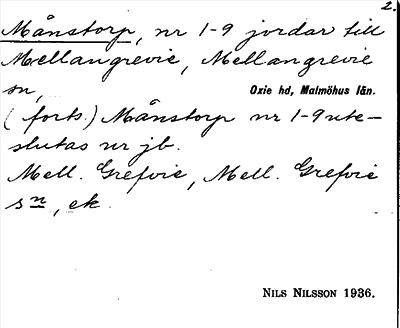 2.
Månstorp, nr 1-9 jordar till
Mellangrevie, Mellangrevie
sn,
Oxie hd, Malmöhus län.
(forts.) Månstorp nr 1-9 ute-
slutas ur jb.
Mell. Grefvie, Mell. Grefvie
sn, ek.
NILS NILSSON 1936.